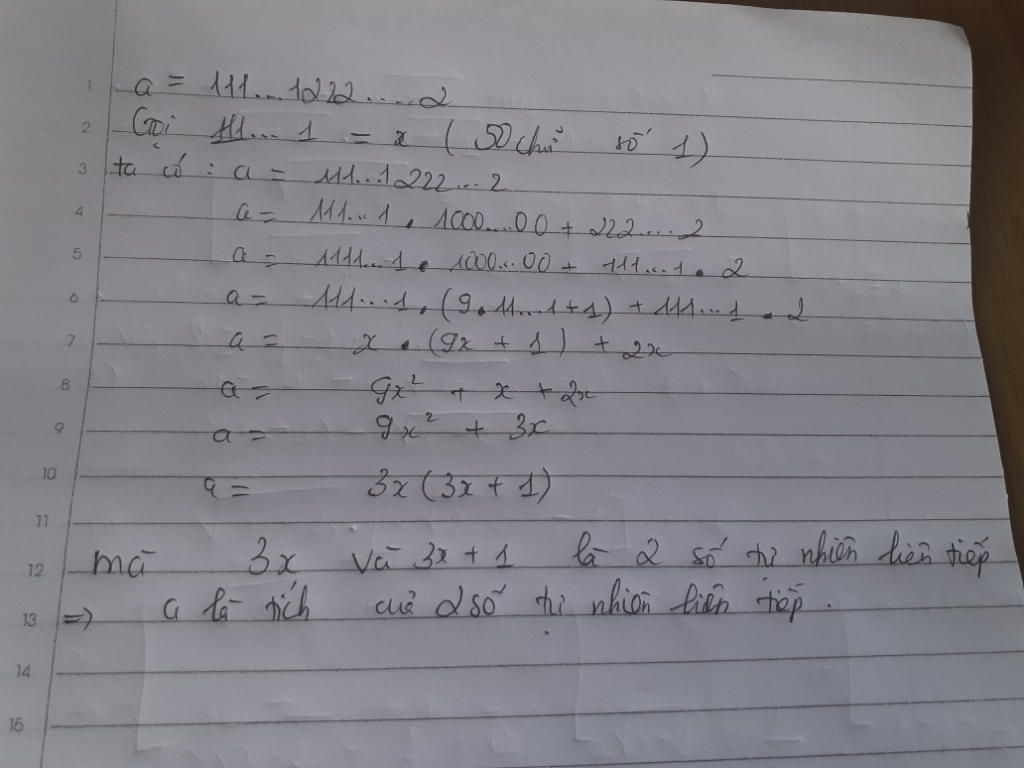 1 a = 111...1222.....2
2 Gọi 111... 1 = x ( 50 chữ số 1)
3 ta có : a = 111...1222...2
4 a = 111...1 . 1000....00 + 222....2
5 a = 1111...1 . 1000...00 + 111...1 . 2
6 a = 111...1 . (9.11...1+1) + 111...1 . 2
7 a = x . (9x + 1) + 2x
8 a = 9x² + x + 2x
9 a = 9x² + 3x
10 a = 3x (3x + 1)
11
12 mà 3x và 3x + 1 là 2 số tự nhiên liên tiếp
13 => a là tích của 2 số tự nhiên liên tiếp .
14
15